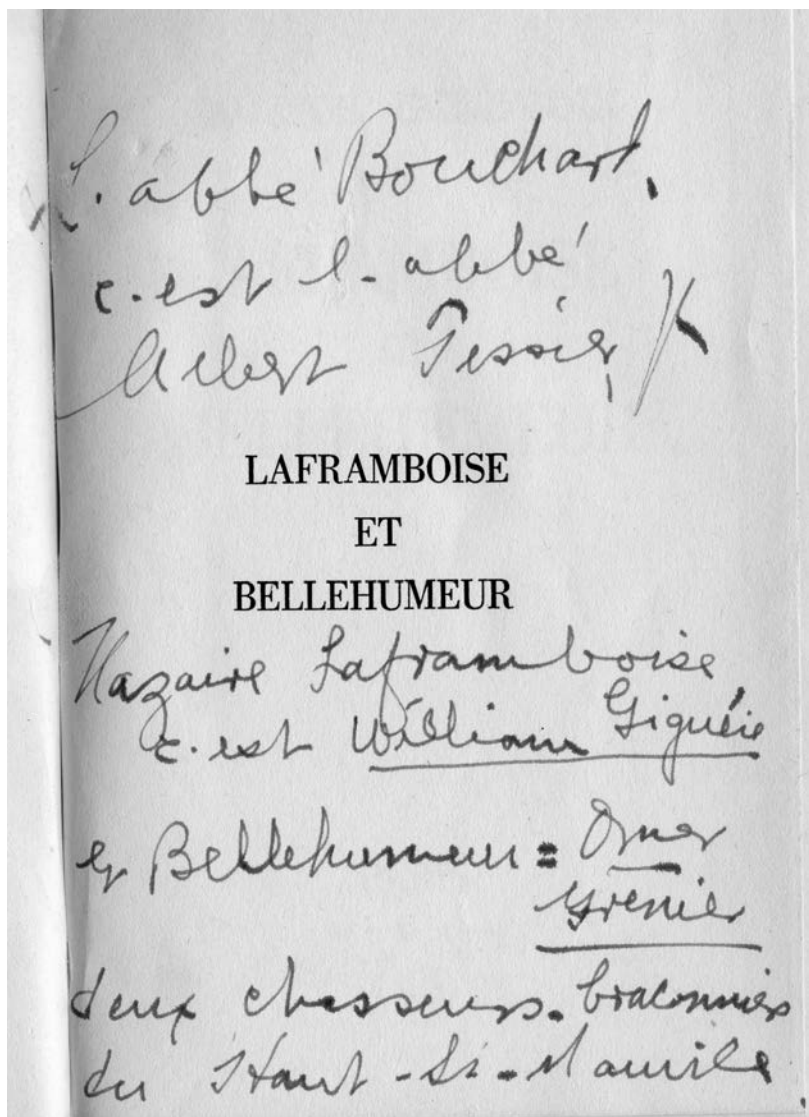 L'abbé Bouchard,
c'est l'abbé
Albert Tessier,
LAFRAMBOISE
ET
BELLEHUMEUR
Nazaire Laframboise,
c'est William Giguère
et Bellehumeur = Omer
Grenier
deux chasseurs-braconniers
du Haut-St-Maurice